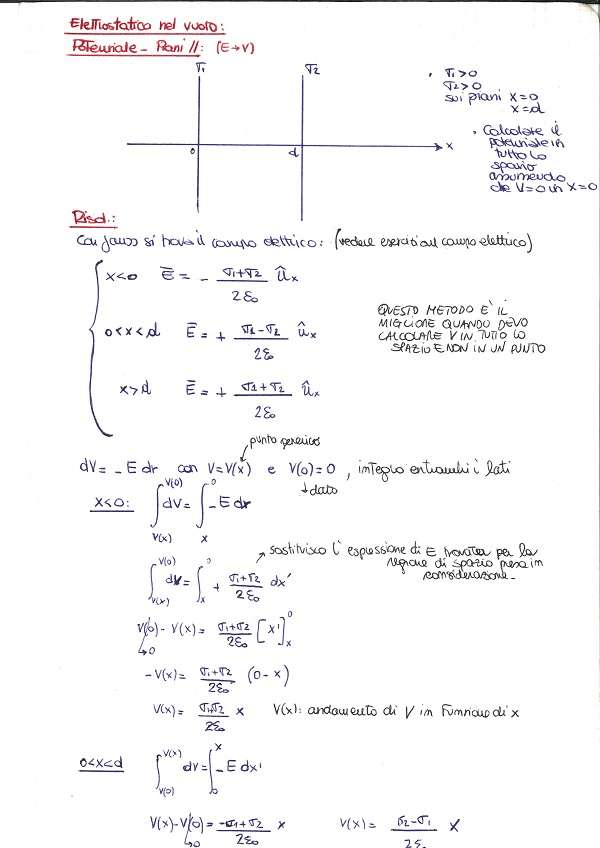 Elettrostatica nel vuoto:
Potenziale - Piani //: (E→V)
σ1 σ2
0 d x
• σ1>0
σ2>0
sui piani x=0
x=d
• Calcolare il
potenziale in
tutto lo
spazio
assumendo
che V=0 in x=0
Risol.:
Con Gauss si trova il campo elettrico: (vedere esercizi sul campo elettrico)
x<0 E̅ = - (σ1+σ2)/(2ε₀) ûx
0<x<d E̅ = + (σ1-σ2)/(2ε₀) ûx
x>d E̅ = + (σ1+σ2)/(2ε₀) ûx
QUESTO METODO E' IL
MIGLIORE QUANDO DEVO
CALCOLARE V IN TUTTO LO
SPAZIO E NON IN UN PUNTO
punto generico
dV = - E dr con V=V(x) e V(0)=0, integro entrambi i lati
dato
x<0: ∫_{V(x)}^{V(0)} dV = ∫_x^0 -E dr
sostituisco l'espressione di E trovata per la
regione di spazio presa in
considerazione.
∫_{V(x)}^{V(0)} dV = ∫_x^0 + (σ1+σ2)/(2ε₀) dx'
V(0) - V(x) = (σ1+σ2)/(2ε₀) [x']_x^0
0
-V(x) = (σ1+σ2)/(2ε₀) (0-x)
V(x) = (σ1+σ2)/(2ε₀) x V(x): andamento di V in funzione di x
0<x<d ∫_{V(0)}^{V(x)} dV = ∫_0^x -E dx'
V(x)-V(0) = (-σ1+σ2)/(2ε₀) x V(x) = (σ2-σ1)/(2ε₀) x
0